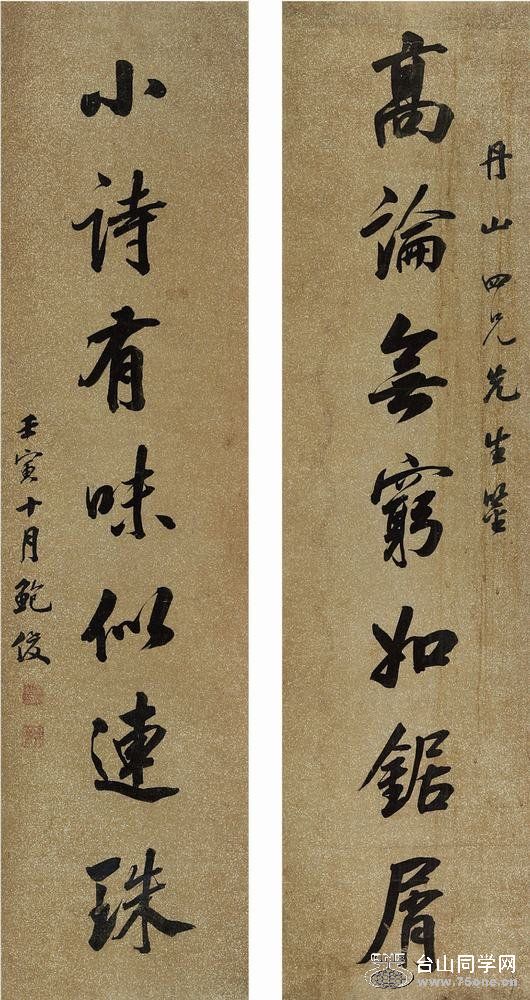 丹山四兄先生鉴
高論无窮如鋸屑
小詩有味似連珠
壬寅十月鲍俊
台山同学网
www.75one.com